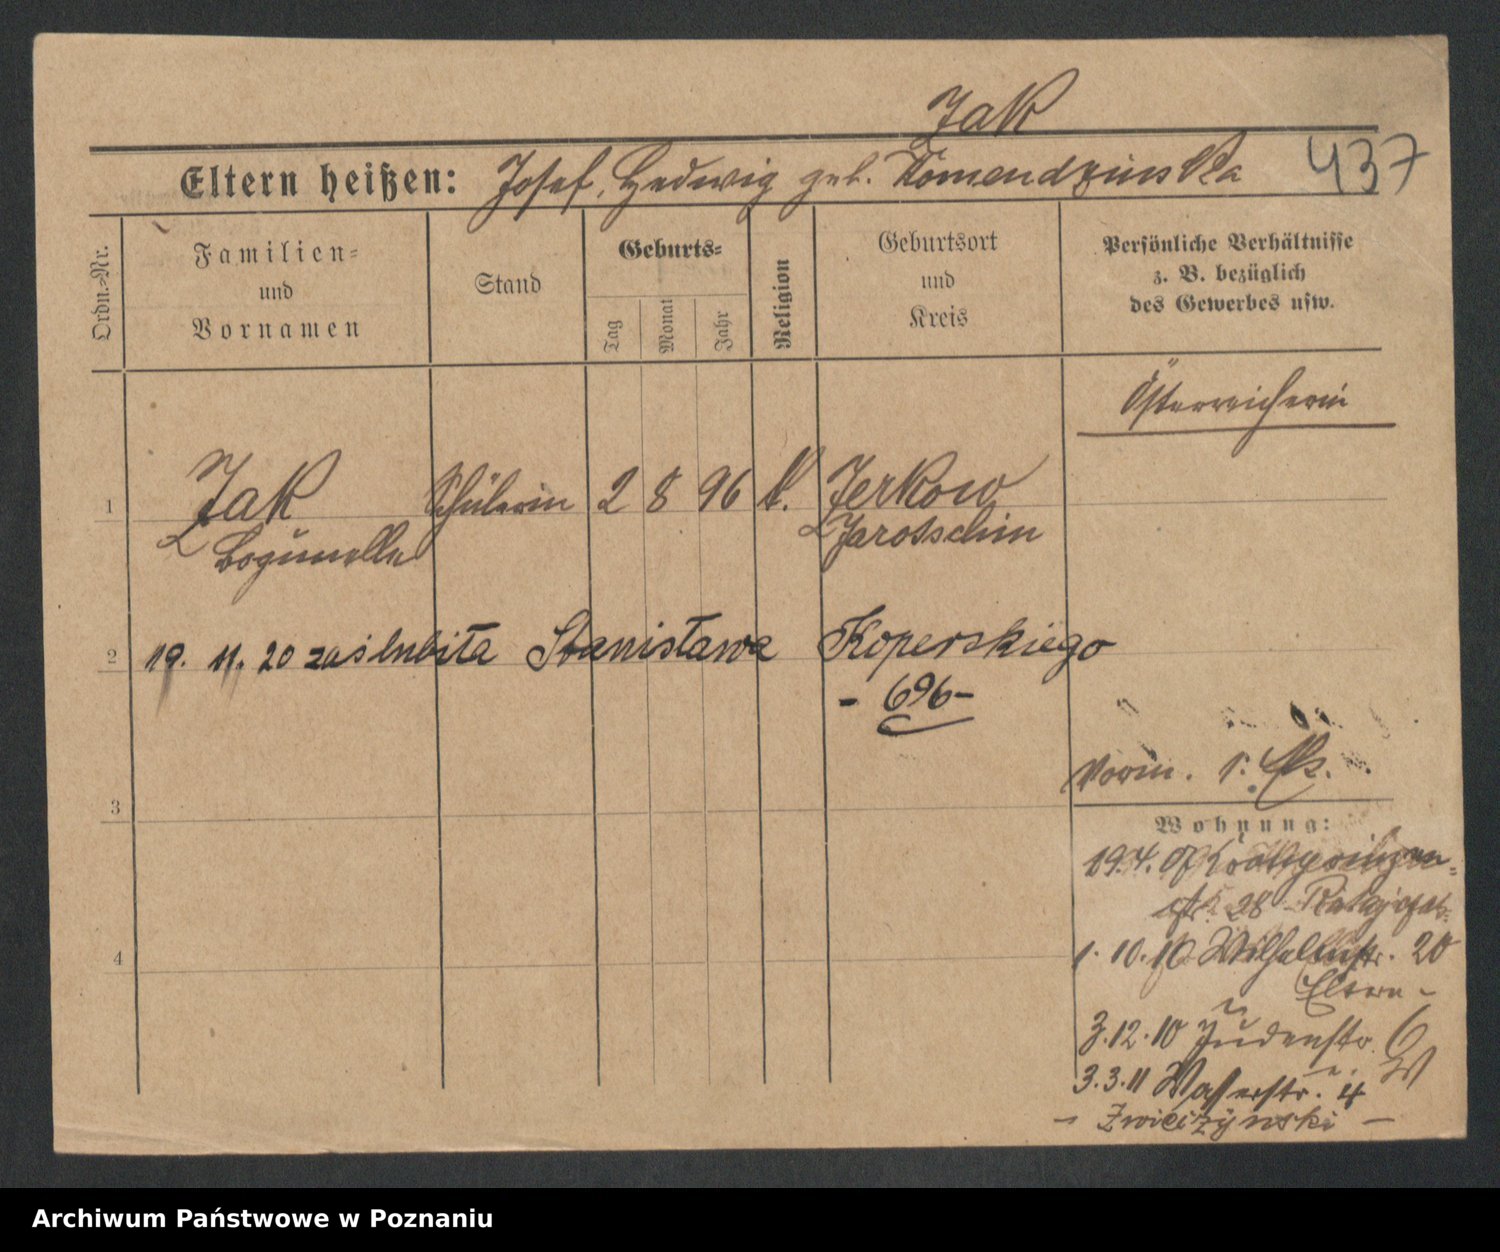 Jak
Eltern heißen: Josef, Hedwig geb. Komendzinska
437
Ordn.-Nr.
Familien-
und
Vornamen
Stand
Geburts-
Tag
Monat
Jahr
Religion
Geburtsort
und
Kreis
Persönliche Verhältnisse
z. B. bezüglich
des Gewerbes usw.
Österreicherin
1
Jak Schülerin 2 8 96 k. Jerkow
Jarotschin
Bogumella
2
19. 11. 20 zaślubiła Stanisława Koperskiego
- 696 -
3
4
Vorm.
Wohnung:
19.4. 07 Kronprinzen-
str. 28 Ratajczak
1. 10. 10 Wilhelmstr. 20
Eltern -
3.12.10 Judenstr. 6
3.3.11 Wasserstr. 4
- Zwieiżynski -
Archiwum Państwowe w Poznaniu